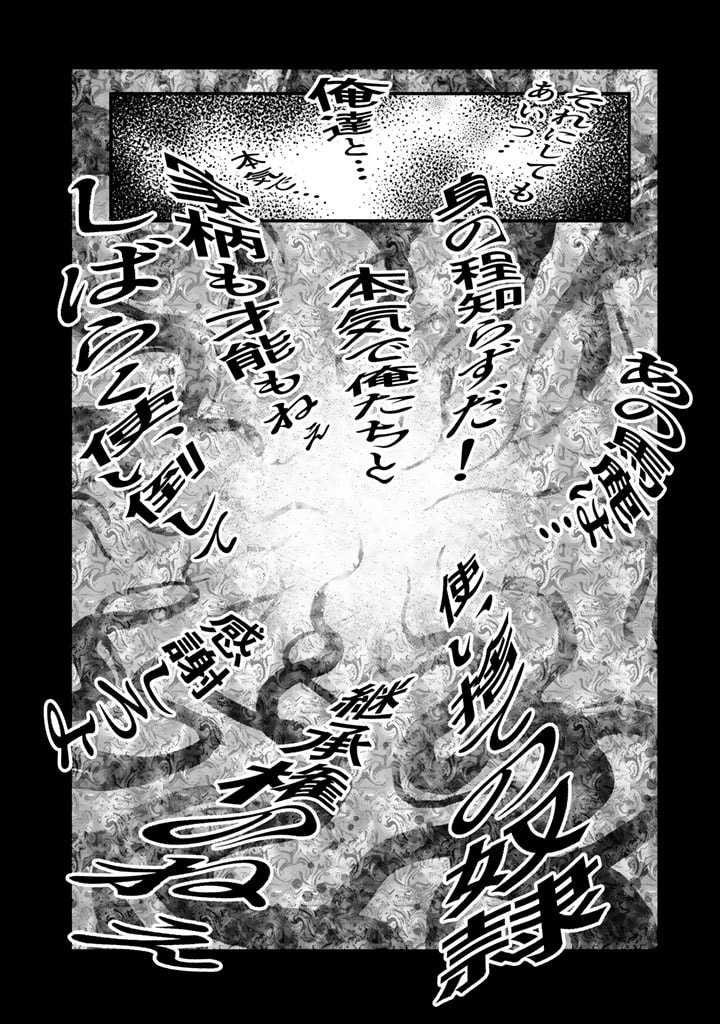 それにしても
あいつ…
俺達と…
本気で…
身の程知らずだ!
本気で俺たちと
家柄も才能もねぇ
しばらく使い倒して
あの馬龍は…
使い捨ての奴隷
継承権のねえ
感謝しろよ